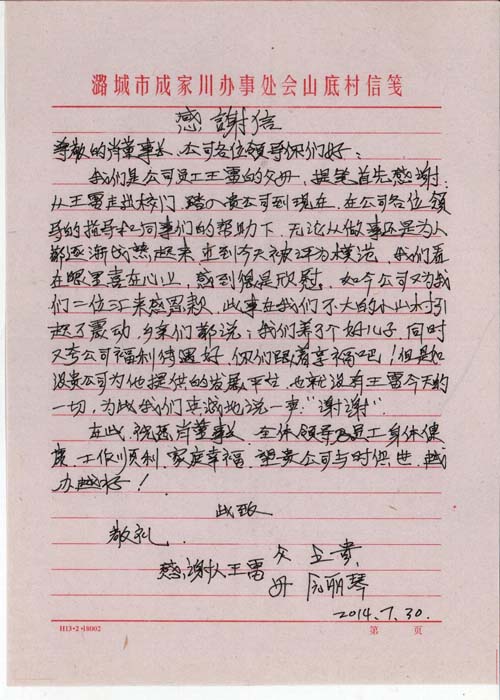 潞城市成家川办事处会山底村信笺
感謝信
尊敬的肖董事长、公司各位领导你们好：
我们是公司员工王雷的父母，提笔首先感谢：
从王雷走出校门，踏入贵公司到现在，在公司各位领
导的指导和同事们的帮助下，无论从做事还是为人
都逐渐成熟起来，直到今天被评为模范，我们看
在眼里喜在心上，感到很是欣慰。如今公司又为我
们二位汇来感恩款，此事在我们不大的小山村引
起了震动，乡亲们都说：我们养了个好儿子，同时
又夸公司福利待遇好，你们跟着享福吧！但是如
没贵公司为他提供的发展平台，也就没有王雷今天的
一切，为此我们真诚地说一声“谢谢”
在此，祝愿肖董事长、全体领导及员工身体健
康、工作顺利、家庭幸福，望贵公司与时俱进，越
办越好！
此致
敬礼
感谢人王雷 父 贵
母 丽琴
2014.7.30.
H13·2·18002
第 页